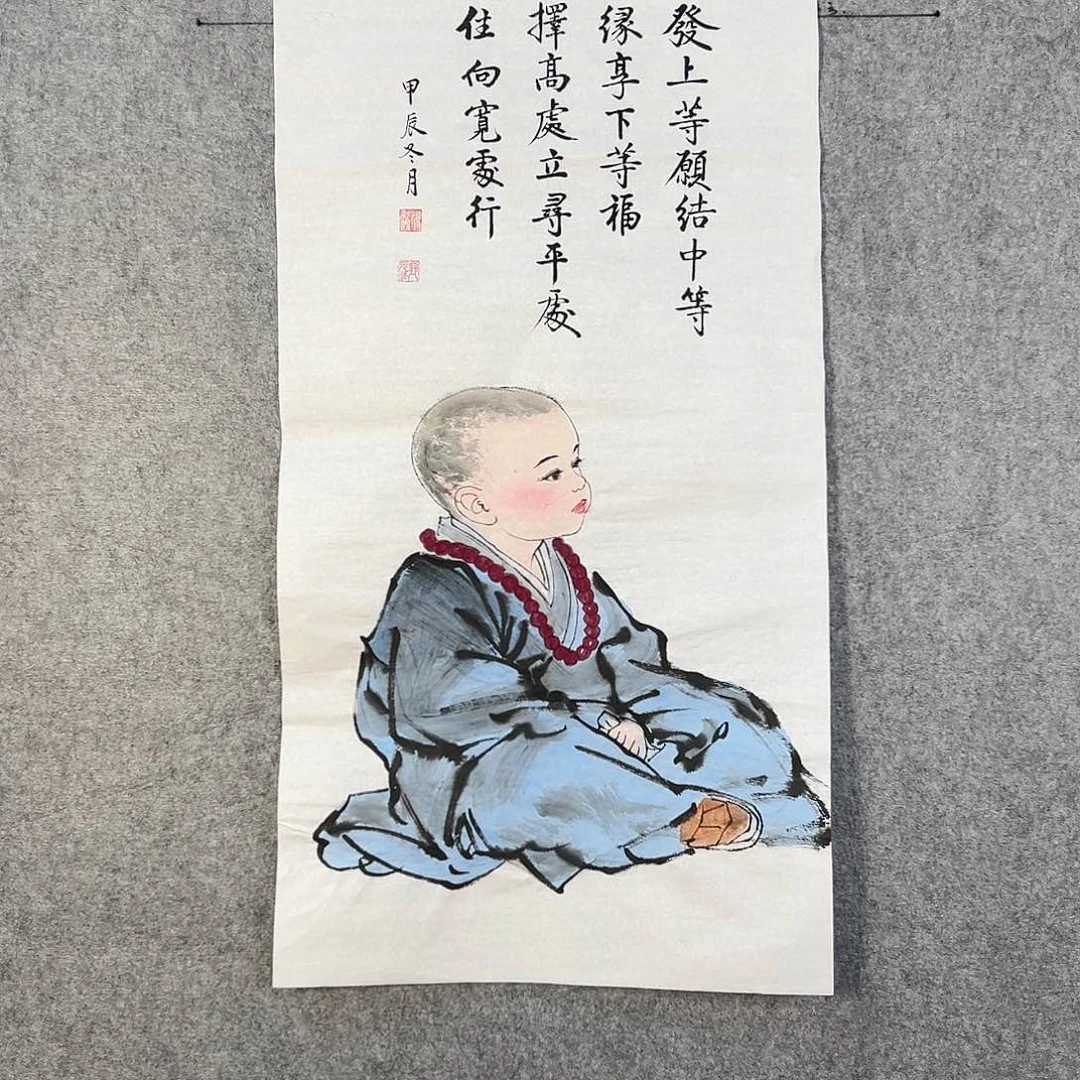 發上等願結中等
緣享下等福
擇高處立尋平處
住向寬處行
甲辰冬月